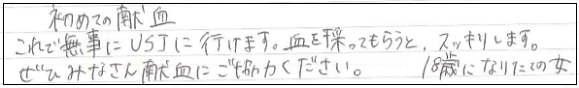 初めての献血
これで無事にUSJに行けます。血を採ってもらうと、スッキリします。
ぜひみなさん献血にご協力ください。 18歳になりたての女